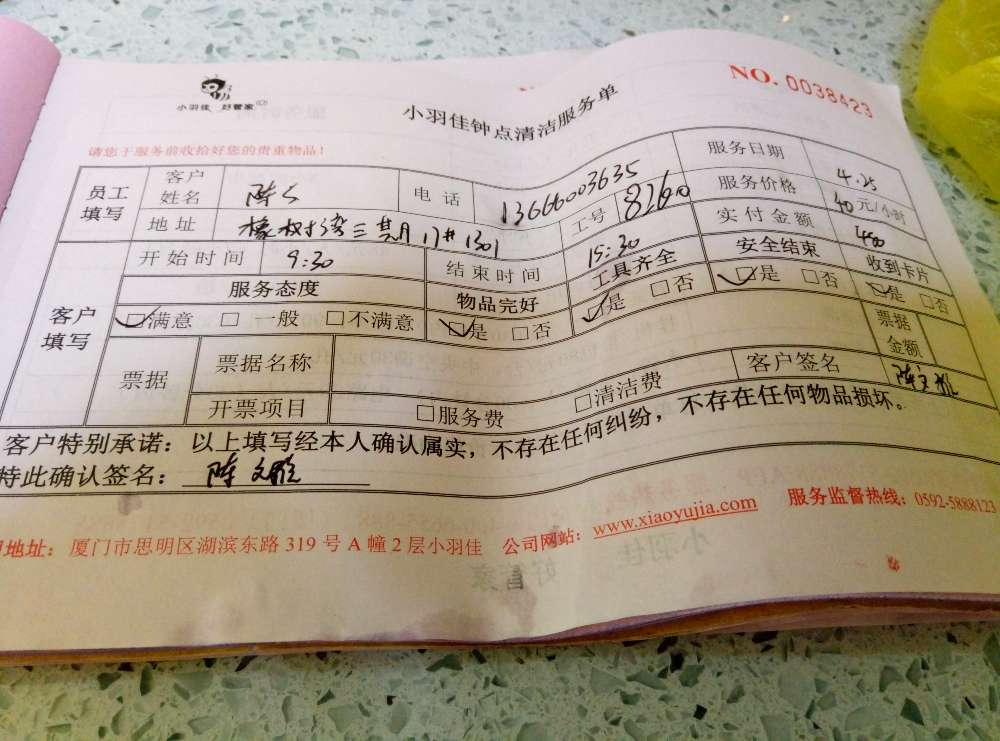 小羽佳 好管家
小羽佳钟点清洁服务单
NO. 0038423
请您于服务前收拾好您的贵重物品！
员工填写 客户姓名 陈 电话 13666003635 服务日期 4.25
地址 橡树湾三期17# 1301 工号 8260 服务价格 40元/小时
客户填写 开始时间 9:30 结束时间 15:30 实付金额
服务态度 物品完好 工具齐全 安全结束 收到卡片
☑满意 □一般 □不满意 ☑是 □否 ☑是 □否 ☑是 □否 ☑是 □否
票据 票据名称 票据金额
开票项目 □服务费 □清洁费 客户签名 陈文
客户特别承诺：以上填写经本人确认属实，不存在任何纠纷，不存在任何物品损坏。
特此确认签名：陈文
地址：厦门市思明区湖滨东路 319 号 A 幢 2 层小羽佳 公司网站：www.xiaoyujia.com 服务监督热线：0592-5888123